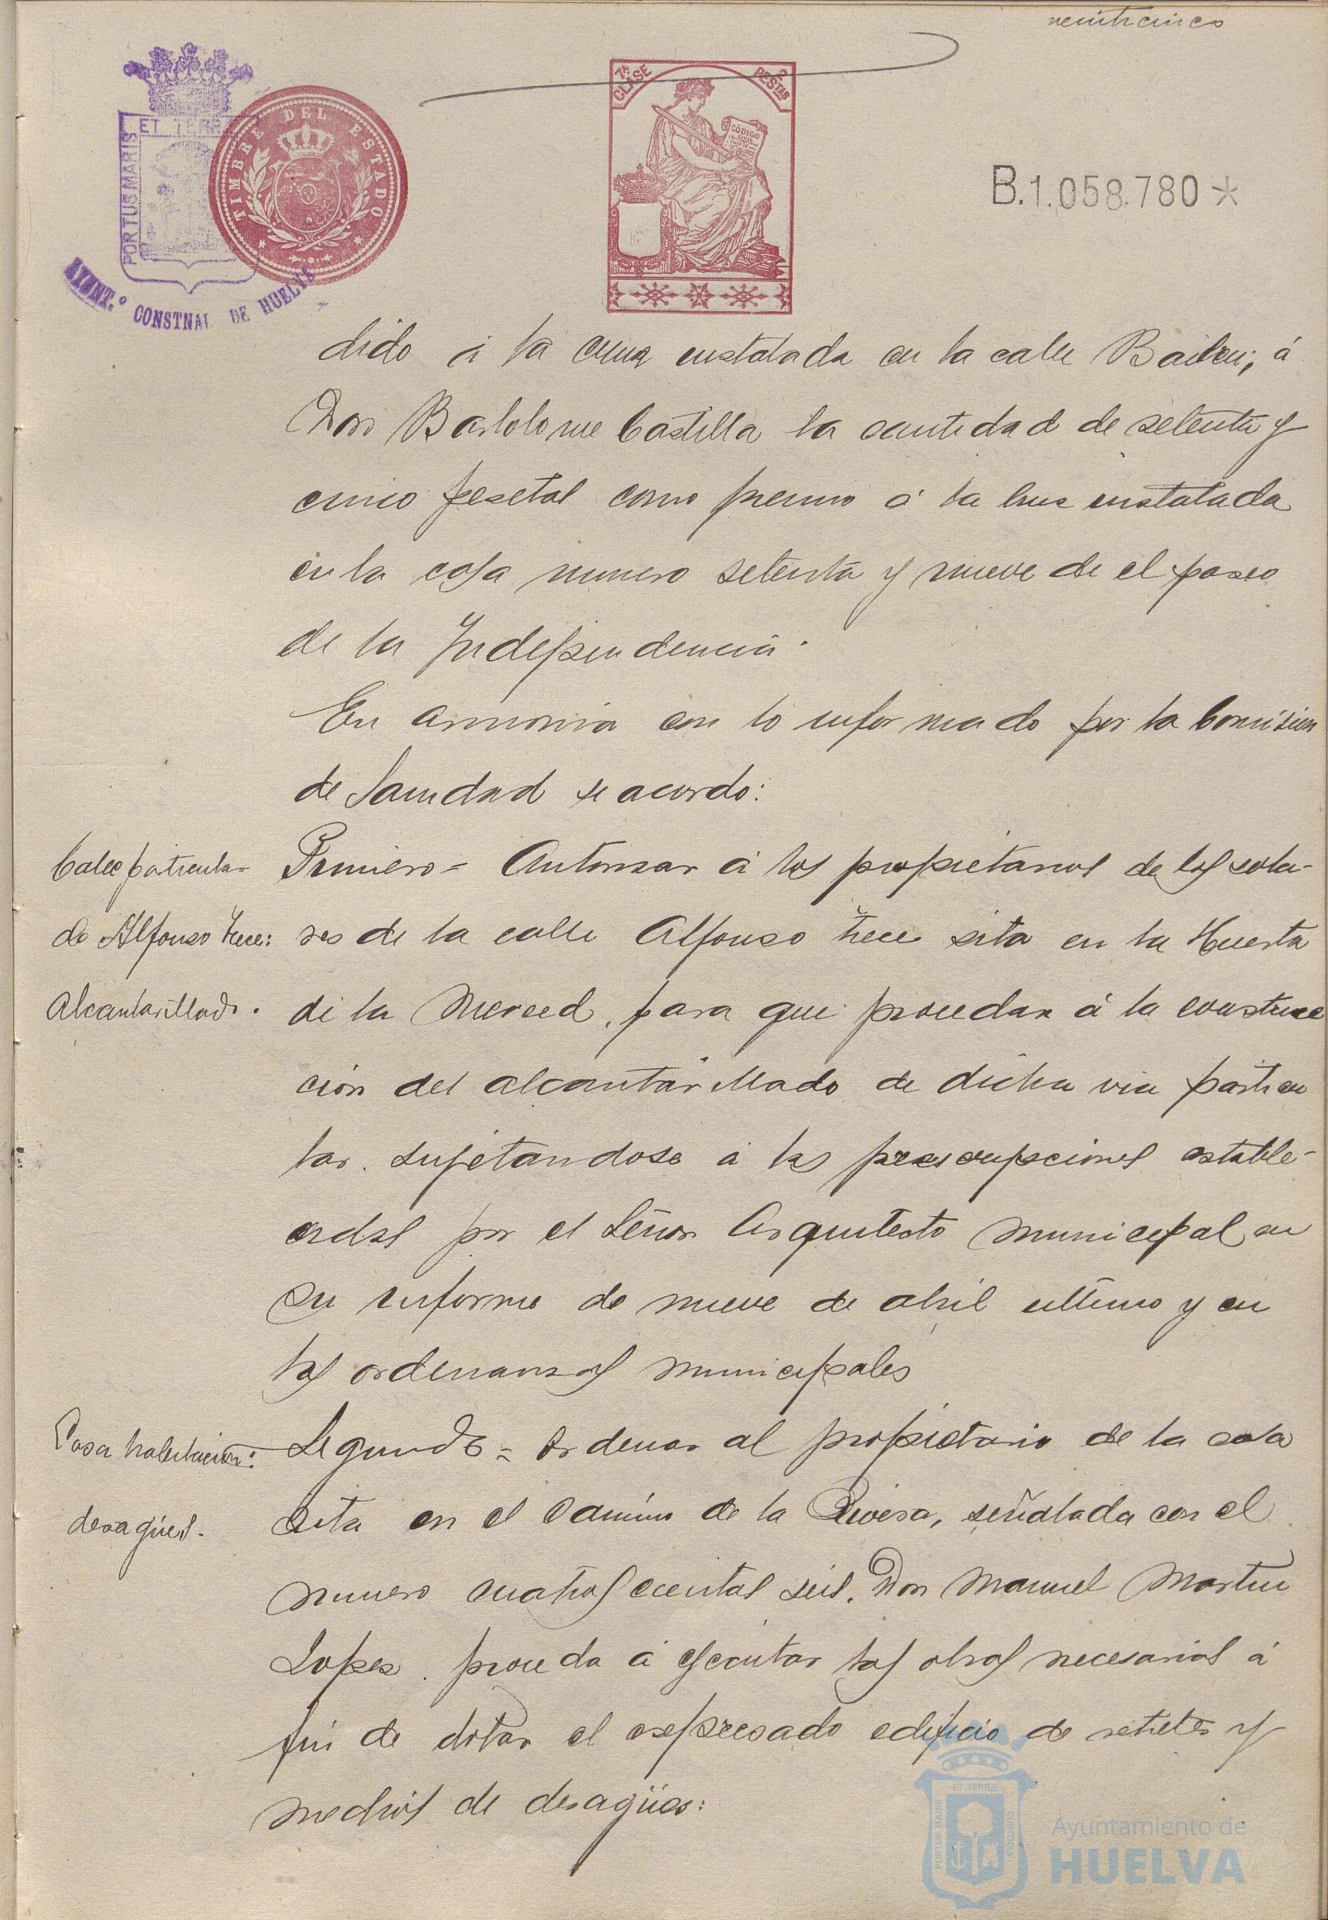 veinticinco
7ª CLASE
2 PESTAS
CÓDIGO
TIMBRE DEL ESTADO
PORTUS MARIS ET TERR
AYUNT.º CONSTNAL DE HUELVA
B.1.058.780*
dido á la cruz instalada en la calle Bailen; á
Don Bartolome Castilla la cantidad de setenta y
cinco pesetas como premio á la cruz instalada
en la casa numero setenta y nueve de el paseo
de la Independencia.
En armonia con lo informado por la Comision
de Sanidad se acordo:
Calle particular
de Alfonso trece:
alcantarillado.
Primero = Autorizar á los propietarios de los sola-
res de la calle Alfonso trece sita en la Huerta
de la Merced, para que procedan á la construc
ción del alcantarillado de dicha via particu
lar, sujetandose a las prescripciones estable-
cidas por el Señor Arquitecto municipal en
su informe de nueve de abril ultimo y en
las ordenanzas municipales
Casa habitacion:
desagües.
Segundo = Ordenar al propietario de la casa
sita en el Camino de la Rivera, señalada con el
numero cuatrocientos seis, Don Manuel Martin
Lopez, proceda á ejecutar las obras necesarias á
fin de dotar el expresado edificio de retretes y
medios de desagües:
Ayuntamiento de
HUELVA